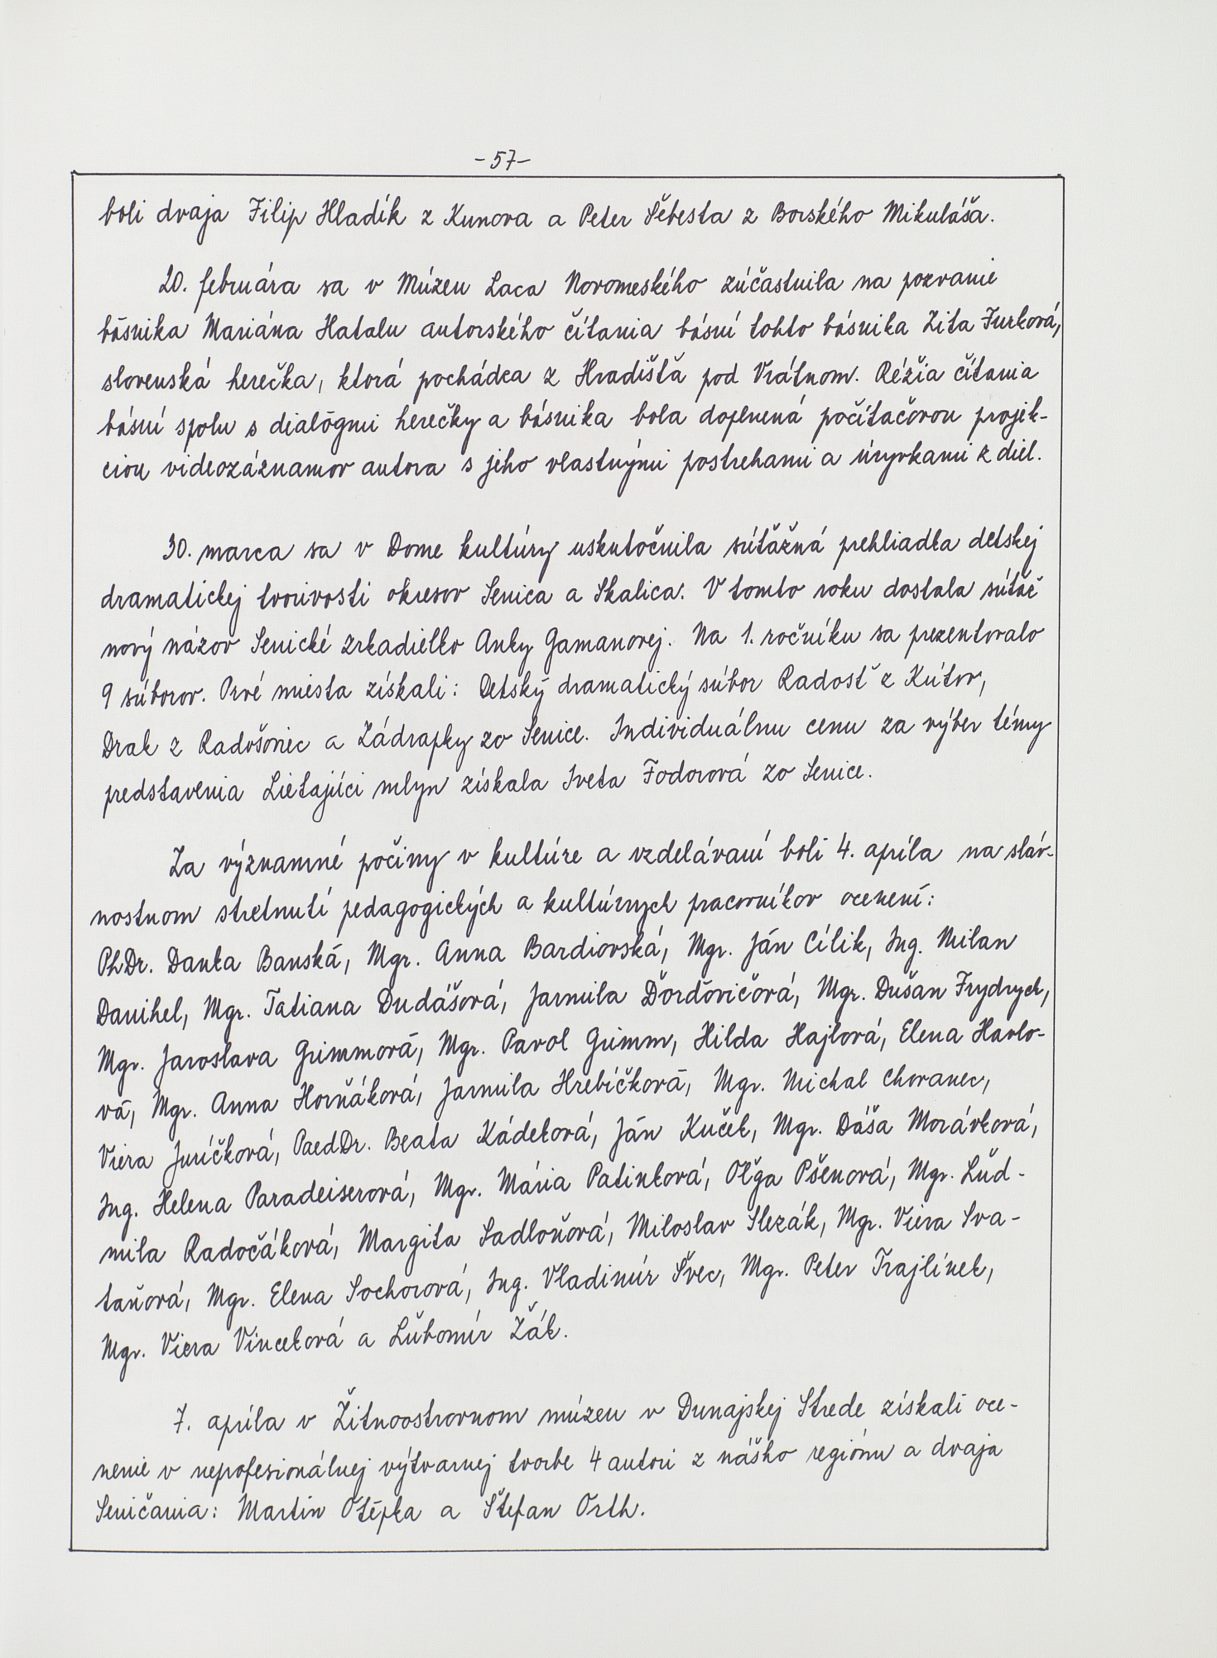 -57-
boli dvaja Filip Hladík z Kunova a Peter Šebesta z Borského Mikuláša.
20. februára sa v Múzeu Laca Novomeského zúčastnila na pozvanie
básnika Mariána Hatalu autorského čítania básní tohto básnika Zita Furková,
slovenská herečka, ktorá pochádza z Hradišťa pod Vrátnom. Réžia čítania
básní spolu s dialógmi herečky a básnika bola doplnená počítačovou projek-
ciou videozáznamov autora s jeho vlastnými postrehami a úryvkami z diel.
30. marca sa v Dome kultúry uskutočnila súťažná prehliadka detskej
dramatickej tvorivosti okresov Senica a Skalica. V tomto roku dostala súťaž
nový názov Senické zrkadielko Anky Gamanovej. Na 1. ročníku sa prezentovalo
9 súborov. Prvé miesta získali: Detský dramatický súbor Radosť z Kútov,
Drak z Radošoviec a Zádrapky zo Senice. Individuálnu cenu za výber témy
predstavenia Lietajúci mlyn získala Iveta Fodorová zo Senice.
Za významné počiny v kultúre a vzdelávaní boli 4. apríla na sláv-
nostnom stretnutí pedagogických a kultúrnych pracovníkov ocenení:
PhDr. Danka Banská, Mgr. Anna Bardiovská, Mgr. Ján Cílik, Ing. Milan
Danihel, Mgr. Tatiana Dudášová, Jarmila Ďorďovičová, Mgr. Dušan Frydrych,
Mgr. Jaroslava Grimmová, Mgr. Pavol Grimm, Hilda Hajlová, Elena Havlo-
vá, Mgr. Anna Horňáková, Jarmila Hrebíčková, Mgr. Michal Choranec,
Viera Juríčková, PaedDr. Beata Kádeková, Ján Kuček, Mgr. Dáša Morávková,
Ing. Helena Paradeiserová, Mgr. Mária Patinková, Oľga Pšenová, Mgr. Ľud-
mila Radočáková, Margita Sadloňová, Miloslav Slezák, Mgr. Viera Sva-
taňová, Mgr. Elena Sochorová, Ing. Vladimír Švec, Mgr. Peter Trajlínek,
Mgr. Viera Vinceková a Ľubomír Žák.
7. apríla v Žitnoostrovnom múzeu v Dunajskej Strede získali oce-
nenie v neprofesionálnej výtvarnej tvorbe 4 autori z nášho regiónu a dvaja
Seničania: Martin Otépka a Štefan Orth.